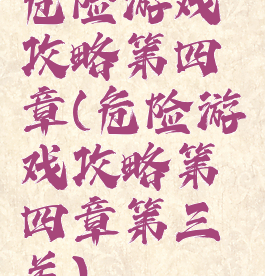 危险游戏
攻略第四
章(危险游
戏攻略第
四章第三
关)